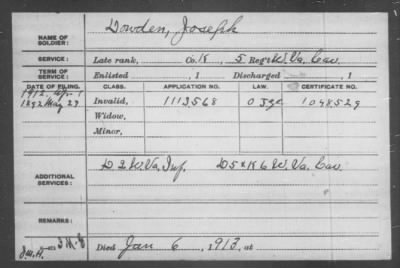 NAME OF SOLDIER: Dowden, Joseph
SERVICE: Late rank, Co. K, 5 Reg't W. Va. Cav.
TERM OF SERVICE: Enlisted , 1 Discharged , 1
DATE OF FILING. CLASS. APPLICATION NO. LAW. CERTIFICATE NO.
1912
1892 May 27 Invalid, 1113568 1048529
Widow,
Minor,
ADDITIONAL SERVICES: D 2 W. Va. Inf. D 5 & K 6 W. Va. Cav.
REMARKS:
Died Jan 6, 1913, at